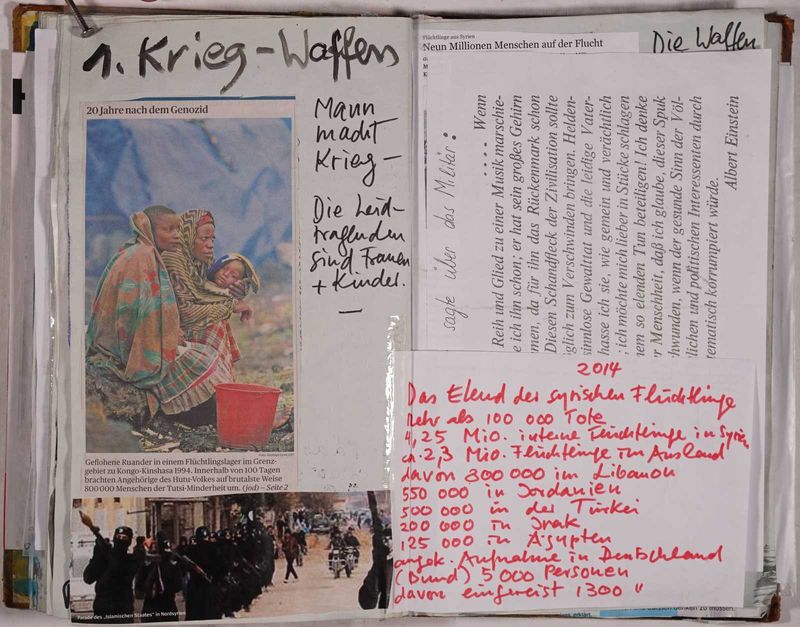 1. Krieg – Waffen
20 Jahre nach dem Genozid
Mann
macht
Krieg –
Die Leid-
tragenden
sind Frauen
+ Kinder.
Geflohene Ruander in einem Flüchtlingslager im Grenz-
gebiet zu Kongo-Kinshasa 1994. Innerhalb von 100 Tagen
brachten Angehörige des Hutu-Volkes auf brutalste Weise
800 000 Menschen der Tutsi-Minderheit um. (jod) – Seite 2
Parade des „Islamischen Staates" in Nordsyrien
Flüchtlinge aus Syrien
Neun Millionen Menschen auf der Flucht
Die Waffen
sagte über das Militär:
.... Wenn
Reih und Glied zu einer Musik marschie-
e ich ihn schon; er hat sein großes Gehirn
men, da für ihn das Rückenmark schon
Diesen Schandfleck der Zivilisation sollte
glich zum Verschwinden bringen. Helden-
sinnlose Gewalttat und die leidige Vater-
hasse ich sie, wie gemein und verächtlich
; ich möchte mich lieber in Stücke schlagen
nem so elenden Tun beteiligen! Ich denke
r Menschheit, daß ich glaube, dieser Spuk
hwunden, wenn der gesunde Sinn der Völ-
lichen und politischen Interessenten durch
tematisch korrumpiert würde.
Albert Einstein
2014
Das Elend der syrischen Flüchtlinge
mehr als 100 000 Tote
4,25 Mio. interne Flüchtlinge in Syrien
ca. 2,3 Mio. Flüchtlinge im Ausland
davon 800 000 im Libanon
550 000 in Jordanien
500 000 in der Türkei
200 000 in Irak
125 000 in Ägypten
angek. Aufnahme in Deutschland
(Bund) 5 000 Personen
davon eingereist 1300 "